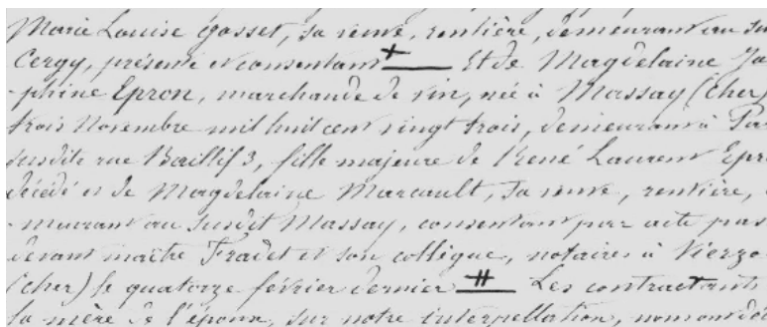 Marie Louise Gosset, sa veuve, rentière, demeurant au su
Cergy, présente et consentant + Et de Magdelaine Jo
-phine Epron, marchande de vin, née à Massay (Cher)
trois Novembre mil huit cent vingt trois, demeurant à Par
susdite rue Baillif 3, fille majeure de René Laurent Epr
décédé et de Magdelaine Marcault, sa veuve, rentière,
-meurant au susdit Massay, consentant par acte pas
devant maître Fradet et son collègue, notaires à Vierzo
(Cher) le quatorze février dernier # Les contractants
la mère de l'époux, sur notre interpellation, nous ont dé